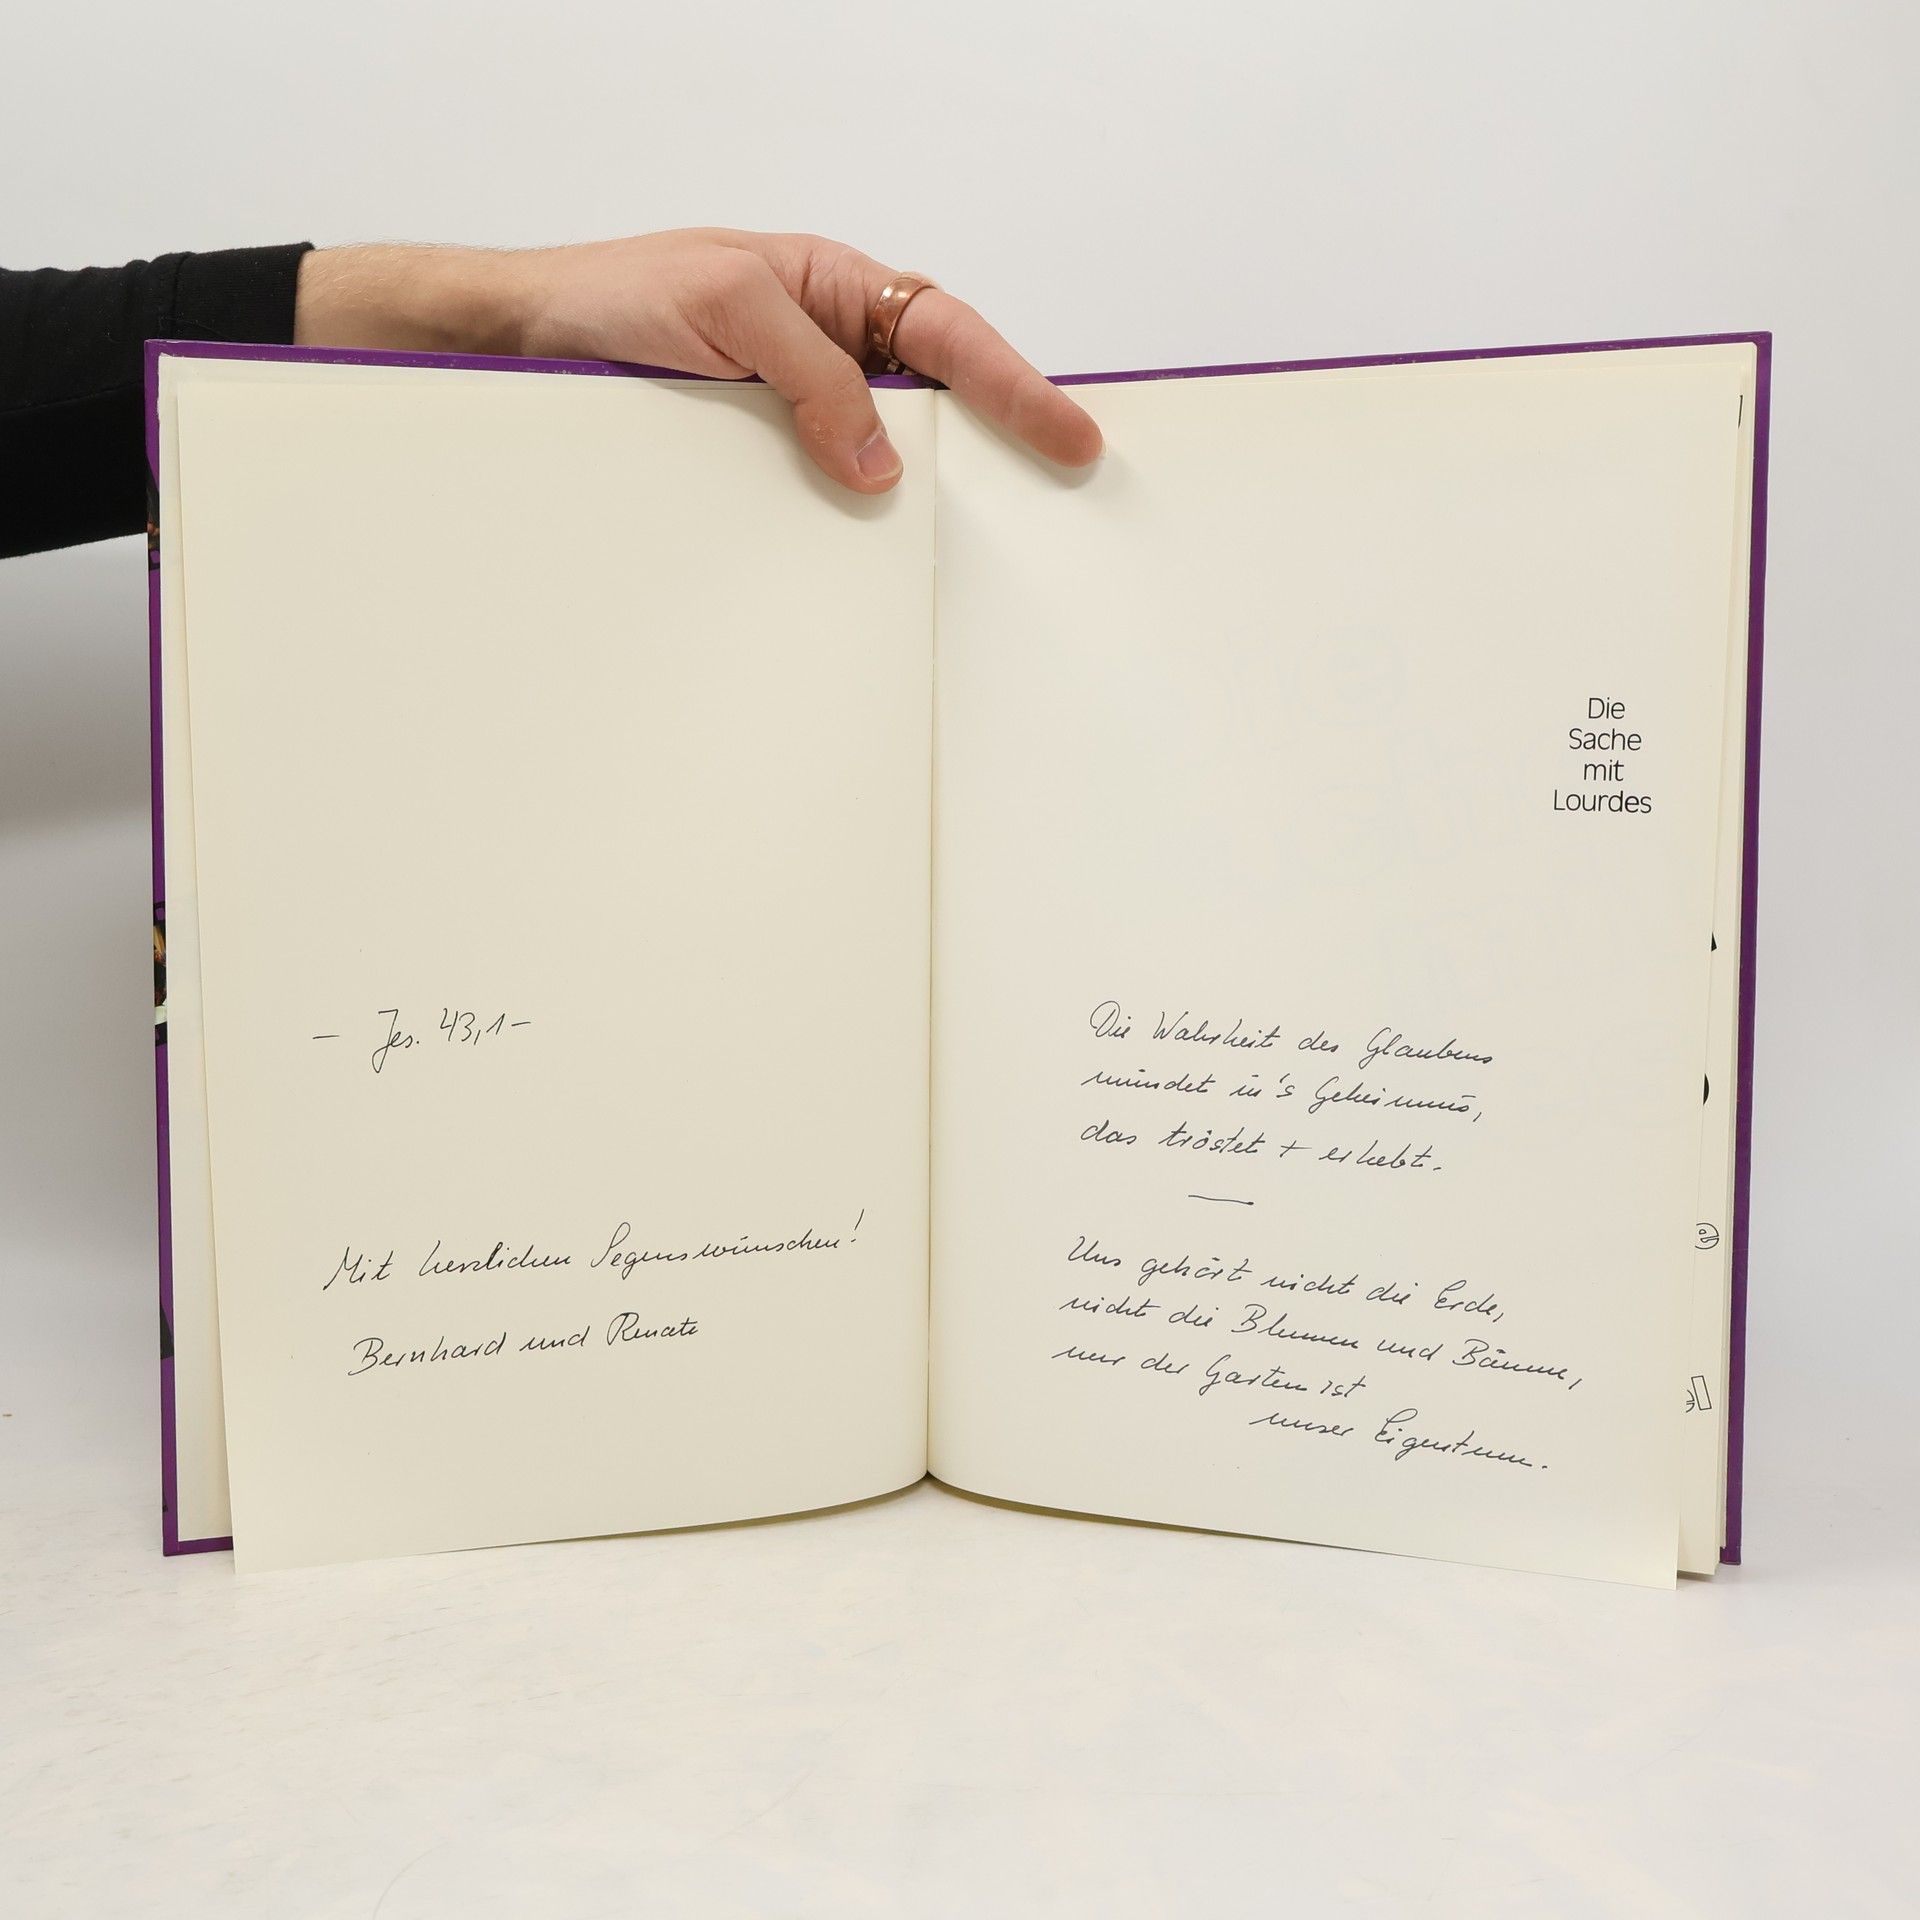 – Jes. 43,1 –
Mit herzlichen Segenswünschen!
Bernhard und Renate
Die
Sache
mit
Lourdes
Die Wahrheit des Glaubens
mündet in's Geheimnis,
das tröstet + erhebt.
Uns gehört nicht die Erde,
nicht die Blumen und Bäume,
nur der Garten ist
unser Eigentum.